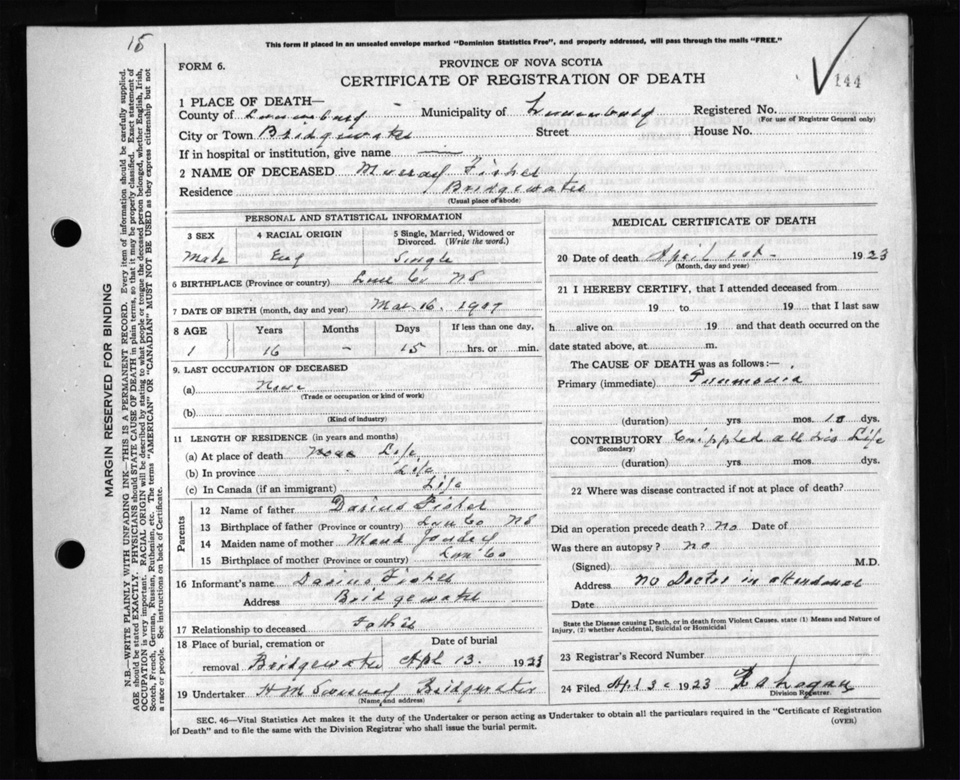 15
This form if placed in an unsealed envelope marked "Dominion Statistics Free", and properly addressed, will pass through the mails "FREE."
FORM 6.
PROVINCE OF NOVA SCOTIA
CERTIFICATE OF REGISTRATION OF DEATH
144
1 PLACE OF DEATH—
County of Lunenburg Municipality of Lunenburg Registered No.
(For use of Registrar General only)
City or Town Bridgewater Street House No.
If in hospital or institution, give name —
2 NAME OF DECEASED Murray Fisher
Residence Bridgewater
(Usual place of abode)
PERSONAL AND STATISTICAL INFORMATION
3 SEX 4 RACIAL ORIGIN 5 Single, Married, Widowed or Divorced. (Write the word.)
Male Eng Single
6 BIRTHPLACE (Province or country) Lun Co NS
7 DATE OF BIRTH (month, day and year) Mar. 16. 1907
8 AGE Years Months Days If less than one day,
1 16 - 15 hrs. or min.
9. LAST OCCUPATION OF DECEASED
(a) None
(Trade or occupation or kind of work)
(b)
(Kind of industry)
11 LENGTH OF RESIDENCE (in years and months)
(a) At place of death Life
(b) In province Life
(c) In Canada (if an immigrant) Life
Parents
12 Name of father Darius Fisher
13 Birthplace of father (Province or country) Lun Co NS
14 Maiden name of mother Maud
15 Birthplace of mother (Province or country) Lun Co
16 Informant's name Darius Fisher
Address Bridgewater
17 Relationship to deceased Father
18 Place of burial, cremation or Date of burial
removal Bridgewater Apl 13. 1923
19 Undertaker H M Bridgewater
(Name and address)
MEDICAL CERTIFICATE OF DEATH
20 Date of death April 1st - 1923
(Month, day and year)
21 I HEREBY CERTIFY, that I attended deceased from
19 to 19 that I last saw
h alive on 19 and that death occurred on the
date stated above, at m.
The CAUSE OF DEATH was as follows:—
Primary (immediate) Pneumonia
(duration) yrs. mos. 10 dys.
CONTRIBUTORY Crippled all his Life
(Secondary)
(duration) yrs. mos. dys.
22 Where was disease contracted if not at place of death?
Did an operation precede death? No Date of
Was there an autopsy? no
(Signed) M.D.
Address No Doctor in attendance
Date
State the Disease causing Death, or in death from Violent Causes. state (1) Means and Nature of
Injury, (2) whether Accidental, Suicidal or Homicidal
23 Registrar's Record Number
24 Filed Apl 3 1923
Division Registrar.
SEC. 46—Vital Statistics Act makes it the duty of the Undertaker or person acting as Undertaker to obtain all the particulars required in the "Certificate of Registration
of Death" and to file the same with the Division Registrar who shall issue the burial permit.
(OVER)
MARGIN RESERVED FOR BINDING
N.B.—WRITE PLAINLY WITH UNFADING INK—THIS IS A PERMANENT RECORD. Every item of information should be carefully supplied.
AGE should be stated EXACTLY. PHYSICIANS should STATE CAUSE OF DEATH in plain terms, so that it may be properly classified. Exact statement of
OCCUPATION is very important. RACIAL ORIGIN will be described by stating to what people or tongue the deceased person belonged, whether English, Irish,
Scotch, French, German, Russian, Ruthenian, etc. The terms "AMERICAN" OR "CANADIAN" MUST NOT BE USED as they express citizenship but not
a race or people. See instructions on back of Certificate.